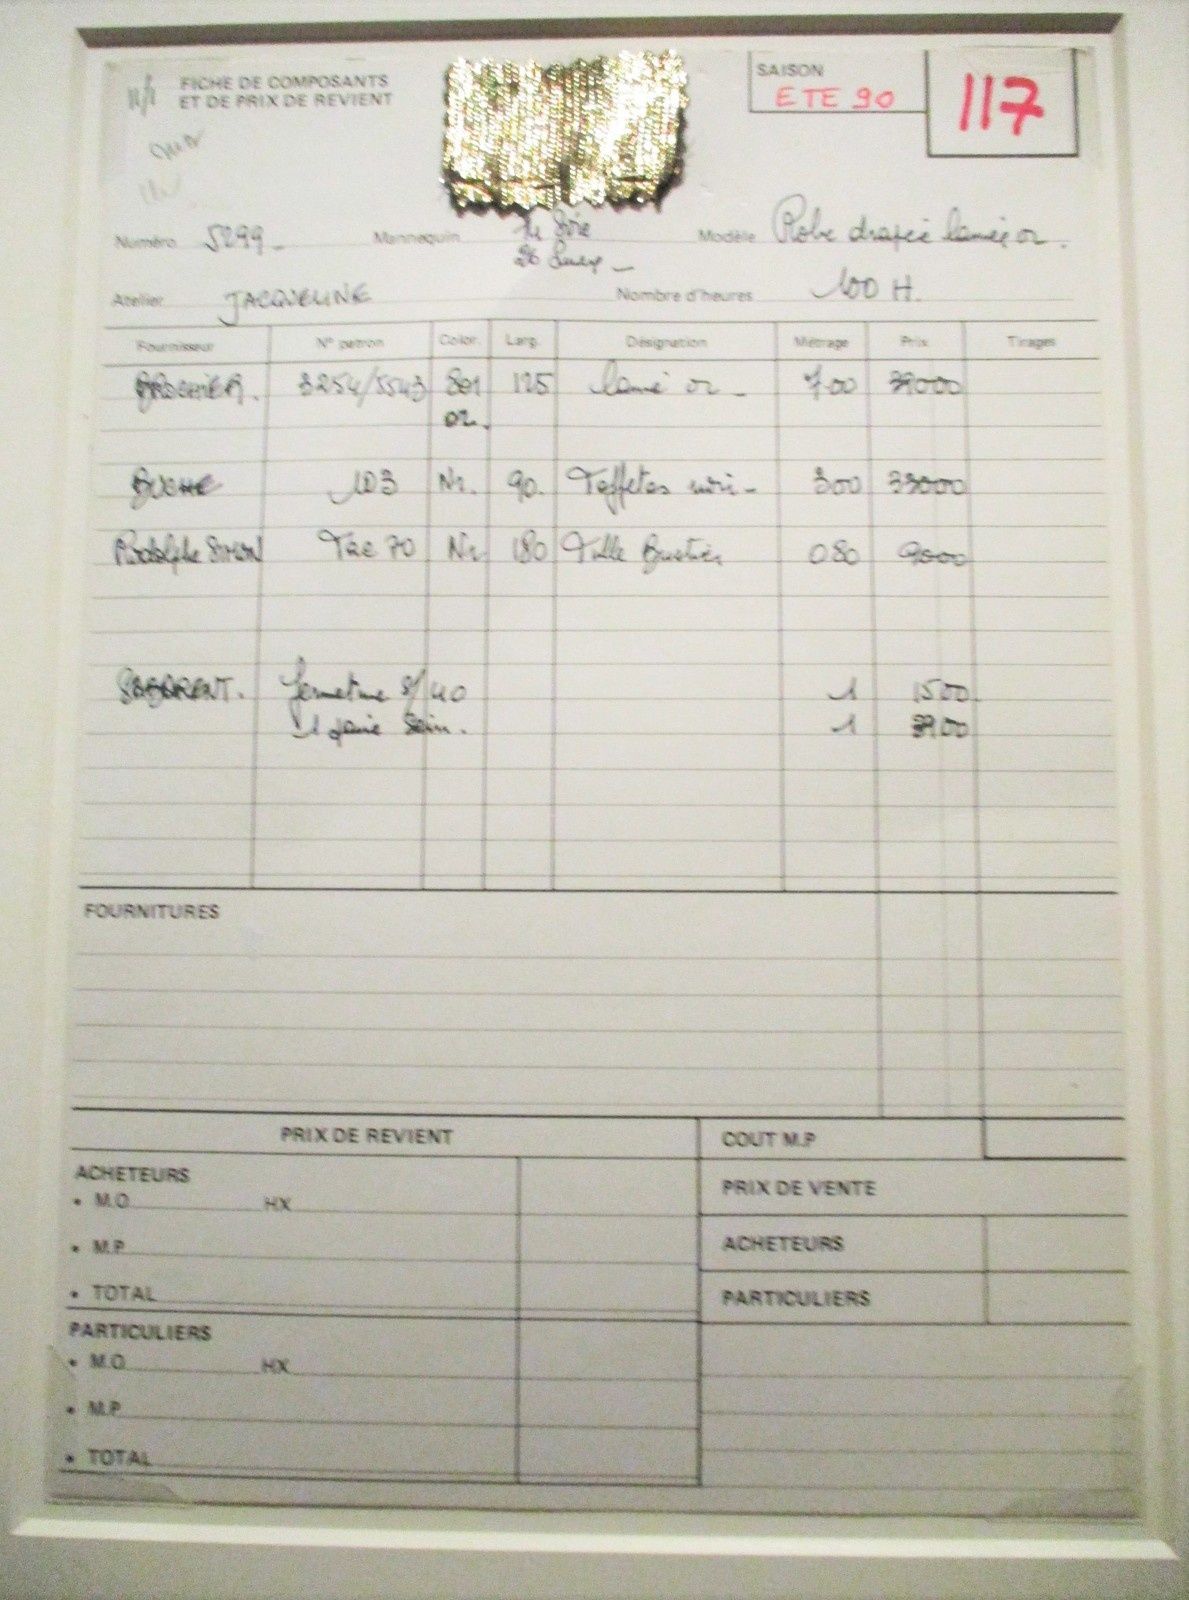 FICHE DE COMPOSANTS
ET DE PRIX DE REVIENT
SAISON
ETE 90
117
Numéro 5299 Mannequin Modèle Robe drapée lamée or.
Atelier JACQUELINE Nombre d'heures 100 H.
Fournisseur N° patron Color. Larg. Désignation Métrage Prix Tirages
3254/5543 801 125 lamé or 7.00 39000
or.
BUCHE 103 Nr. 90. Taffetas noir 300 33000
Rodolphe SIMON Tae 70 Nr 180 Tulle Bustier 080 9000
fermeture s/40 1 1500
1 paire Sein. 1 3900
FOURNITURES
PRIX DE REVIENT
COUT M.P
ACHETEURS
PRIX DE VENTE
• M.O. HX
• M.P. ACHETEURS
• TOTAL PARTICULIERS
PARTICULIERS
• M.O. HX
• M.P.
• TOTAL